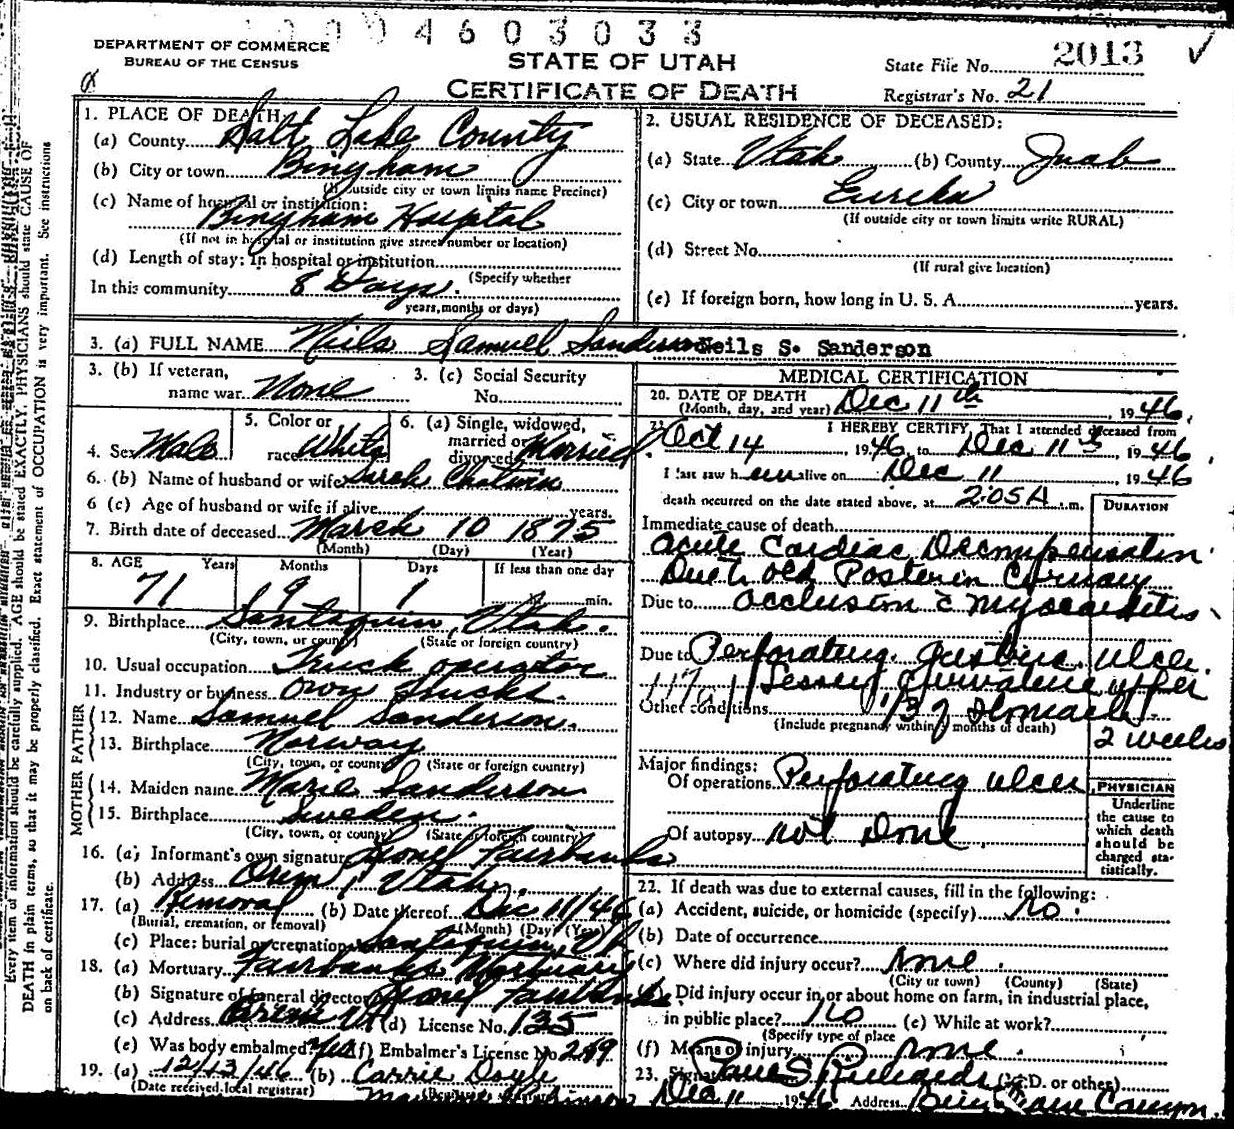 0004603033
DEPARTMENT OF COMMERCE
BUREAU OF THE CENSUS
STATE OF UTAH
CERTIFICATE OF DEATH
State File No. 2013
Registrar's No. 21
1. PLACE OF DEATH
(a) County Salt Lake County
(b) City or town Bingham
(If outside city or town limits name Precinct)
(c) Name of hospital or institution:
Bingham Hospital
(If not in hospital or institution give street number or location)
(d) Length of stay: In hospital or institution
(Specify whether
In this community 8 Days.
years, months or days)
2. USUAL RESIDENCE OF DECEASED:
(a) State Utah (b) County Juab
(c) City or town Eureka
(If outside city or town limits write RURAL)
(d) Street No.
(If rural give location)
(e) If foreign born, how long in U. S. A. years.
3. (a) FULL NAME Niels Samuel Sanderson Neils S. Sanderson
3. (b) If veteran, name war None
3. (c) Social Security No.
4. Sex Male
5. Color or race White
6. (a) Single, widowed, married or divorced Married
6. (b) Name of husband or wife Sarah Chatwin
6 (c) Age of husband or wife if alive years.
7. Birth date of deceased March 10 1875
(Month) (Day) (Year)
8. AGE Years Months Days If less than one day
71 9 1 min.
9. Birthplace Santaquin, Utah.
(City, town, or county) (State or foreign country)
10. Usual occupation Truck operator
11. Industry or business Own Trucks.
FATHER
12. Name Samuel Sanderson.
13. Birthplace Norway
(City, town, or county) (State or foreign country)
MOTHER
14. Maiden name Marie Sanderson
15. Birthplace Sweden.
(City, town, or county) (State or foreign country)
16. (a) Informant's own signature Lionel Fairbanks
(b) Address Orem, Utah.
17. (a) Removal (b) Date thereof Dec 11/46
(Burial, cremation, or removal) (Month) (Day) (Year)
(c) Place: burial or cremation Santaquin, Ut
18. (a) Mortuary Fairbanks Mortuary
(b) Signature of funeral director Lionel Fairbanks
(c) Address Orem Ut (d) License No. 135
(e) Was body embalmed? Yes (f) Embalmer's License No 269
19. (a) 12/13/46 (b) Carrie Doyle
(Date received local registrar)
MEDICAL CERTIFICATION
20. DATE OF DEATH
(Month, day, and year) Dec 11th, 1946.
21. I HEREBY CERTIFY, That I attended deceased from
Oct 14, 1946, to Dec 11th, 1946,
I last saw him alive on Dec 11 1946
death occurred on the date stated above, at 2:05A.m.
DURATION
Immediate cause of death
Acute Cardiac Decompensation
Due to old Posterior Coronary
Due to Occlusion c Myocarditis
Due to Perforating Gastric Ulcer.
Lesser Curvature upper
Other conditions 1/3 of stomach
(Include pregnancy within 3 months of death)
2 weeks
Major findings:
Of operations Perforating ulcer
Of autopsy not Done
PHYSICIAN
Underline
the cause to
which death
should be
charged sta-
tistically.
22. If death was due to external causes, fill in the following:
(a) Accident, suicide, or homicide (specify) No.
(b) Date of occurrence
(c) Where did injury occur? None.
(City or town) (County) (State)
Did injury occur in or about home on farm, in industrial place,
in public place? No (e) While at work?
(Specify type of place
(f) Means of injury None.
23. Signature Paul S. Richards (M.D. or other)
Dec 11 1946 Address Bingham Canyon.
Every item of information should be carefully supplied. AGE should be stated EXACTLY. PHYSICIANS should state CAUSE OF
DEATH in plain terms, so that it may be properly classified. Exact statement of OCCUPATION is very important. See instructions
on back of certificate.